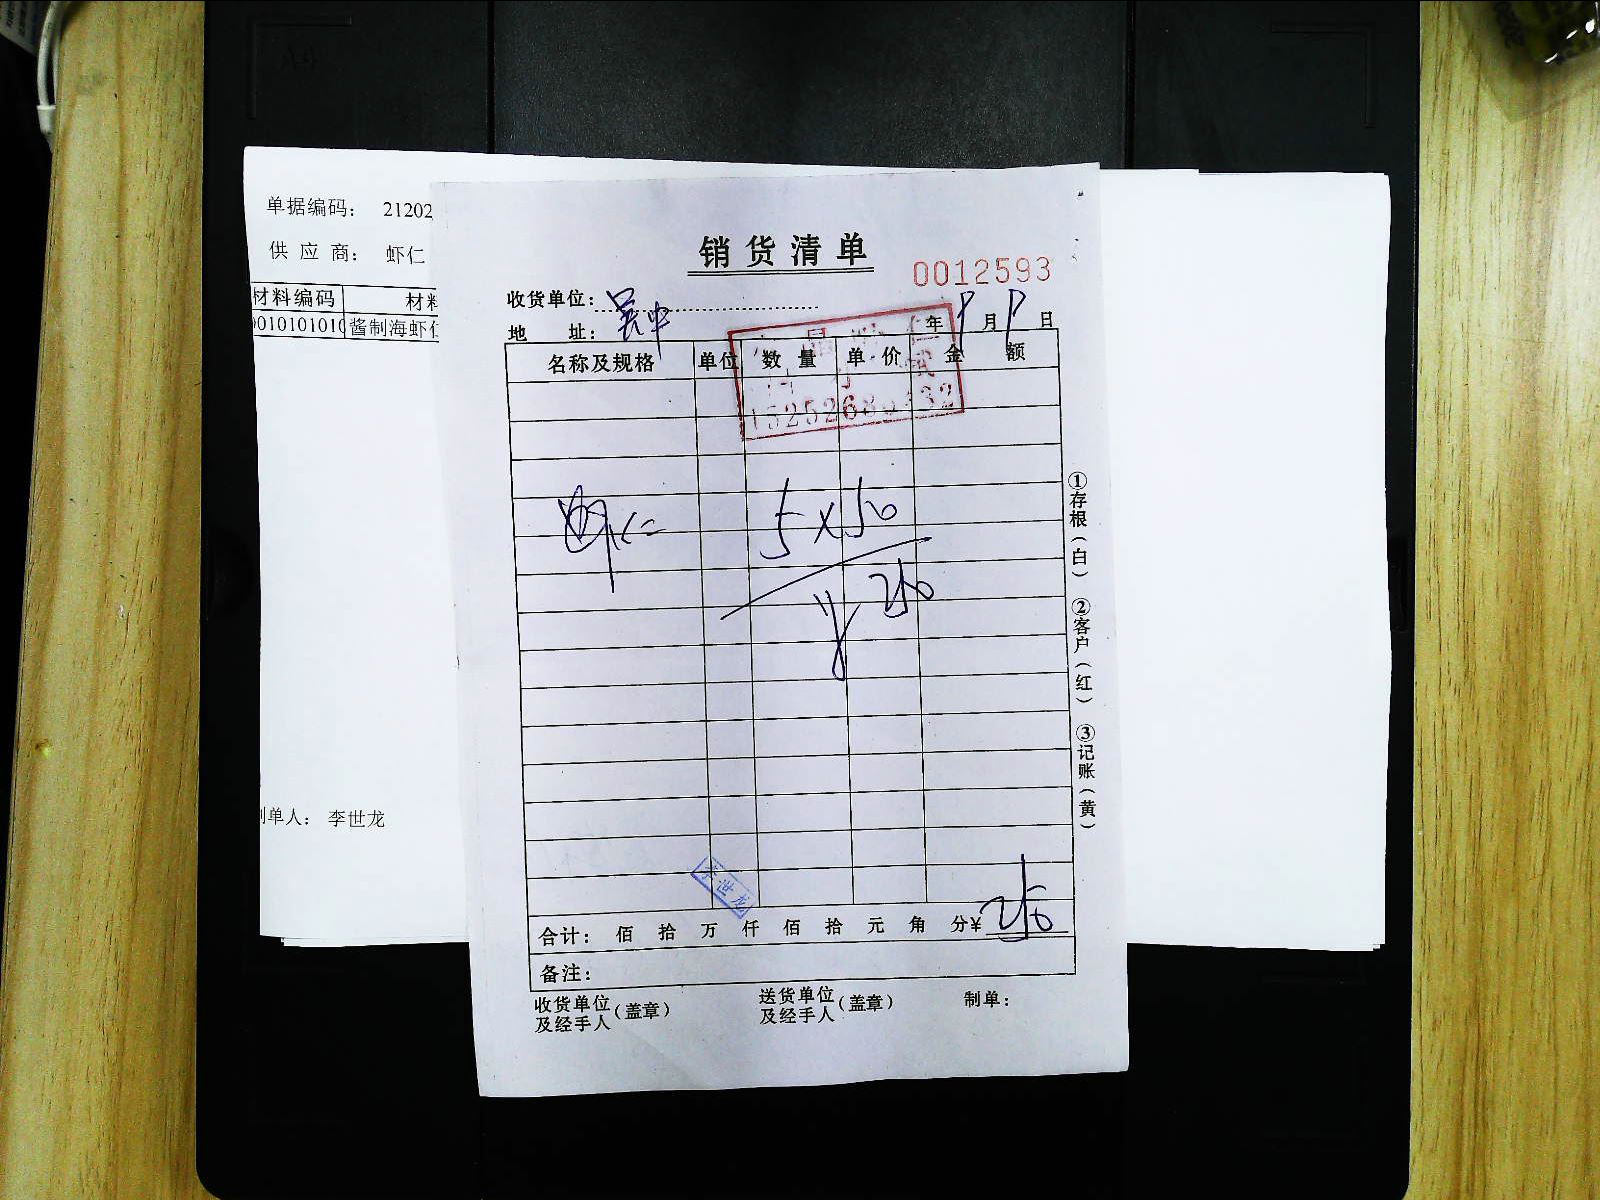 单据编码： 21202
供 应 商： 虾仁
材料编码 材料
0101010100 酱制海虾仁
制单人： 李世龙
销货清单
0012593
收货单位： 吴中
地 址：
年 月 日
名称及规格 单位 数 量 单 价 金 额
虾仁 5×50
¥ 250
李世龙
合计： 佰 拾 万 仟 佰 拾 元 角 分¥ 250
备注：
收货单位及经手人（盖章） 送货单位及经手人（盖章） 制单：
①存根（白） ②客户（红） ③记账（黄）